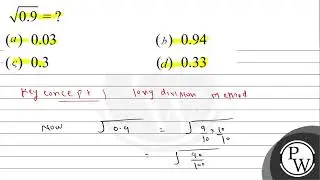 √0.9 = ?
(a) 0.03 (b) 0.94
(c) 0.3 (d) 0.33
Key concept } long division method
Now √0.9 = √9/10 × 10/10
= √90/100
PW